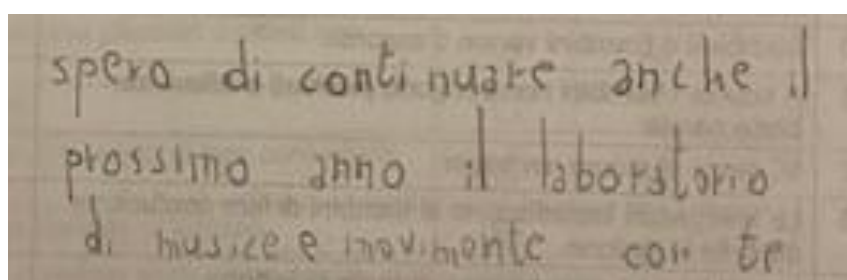 spero di continuare anche il
prossimo anno il laboratorio
di musica e movimento con te